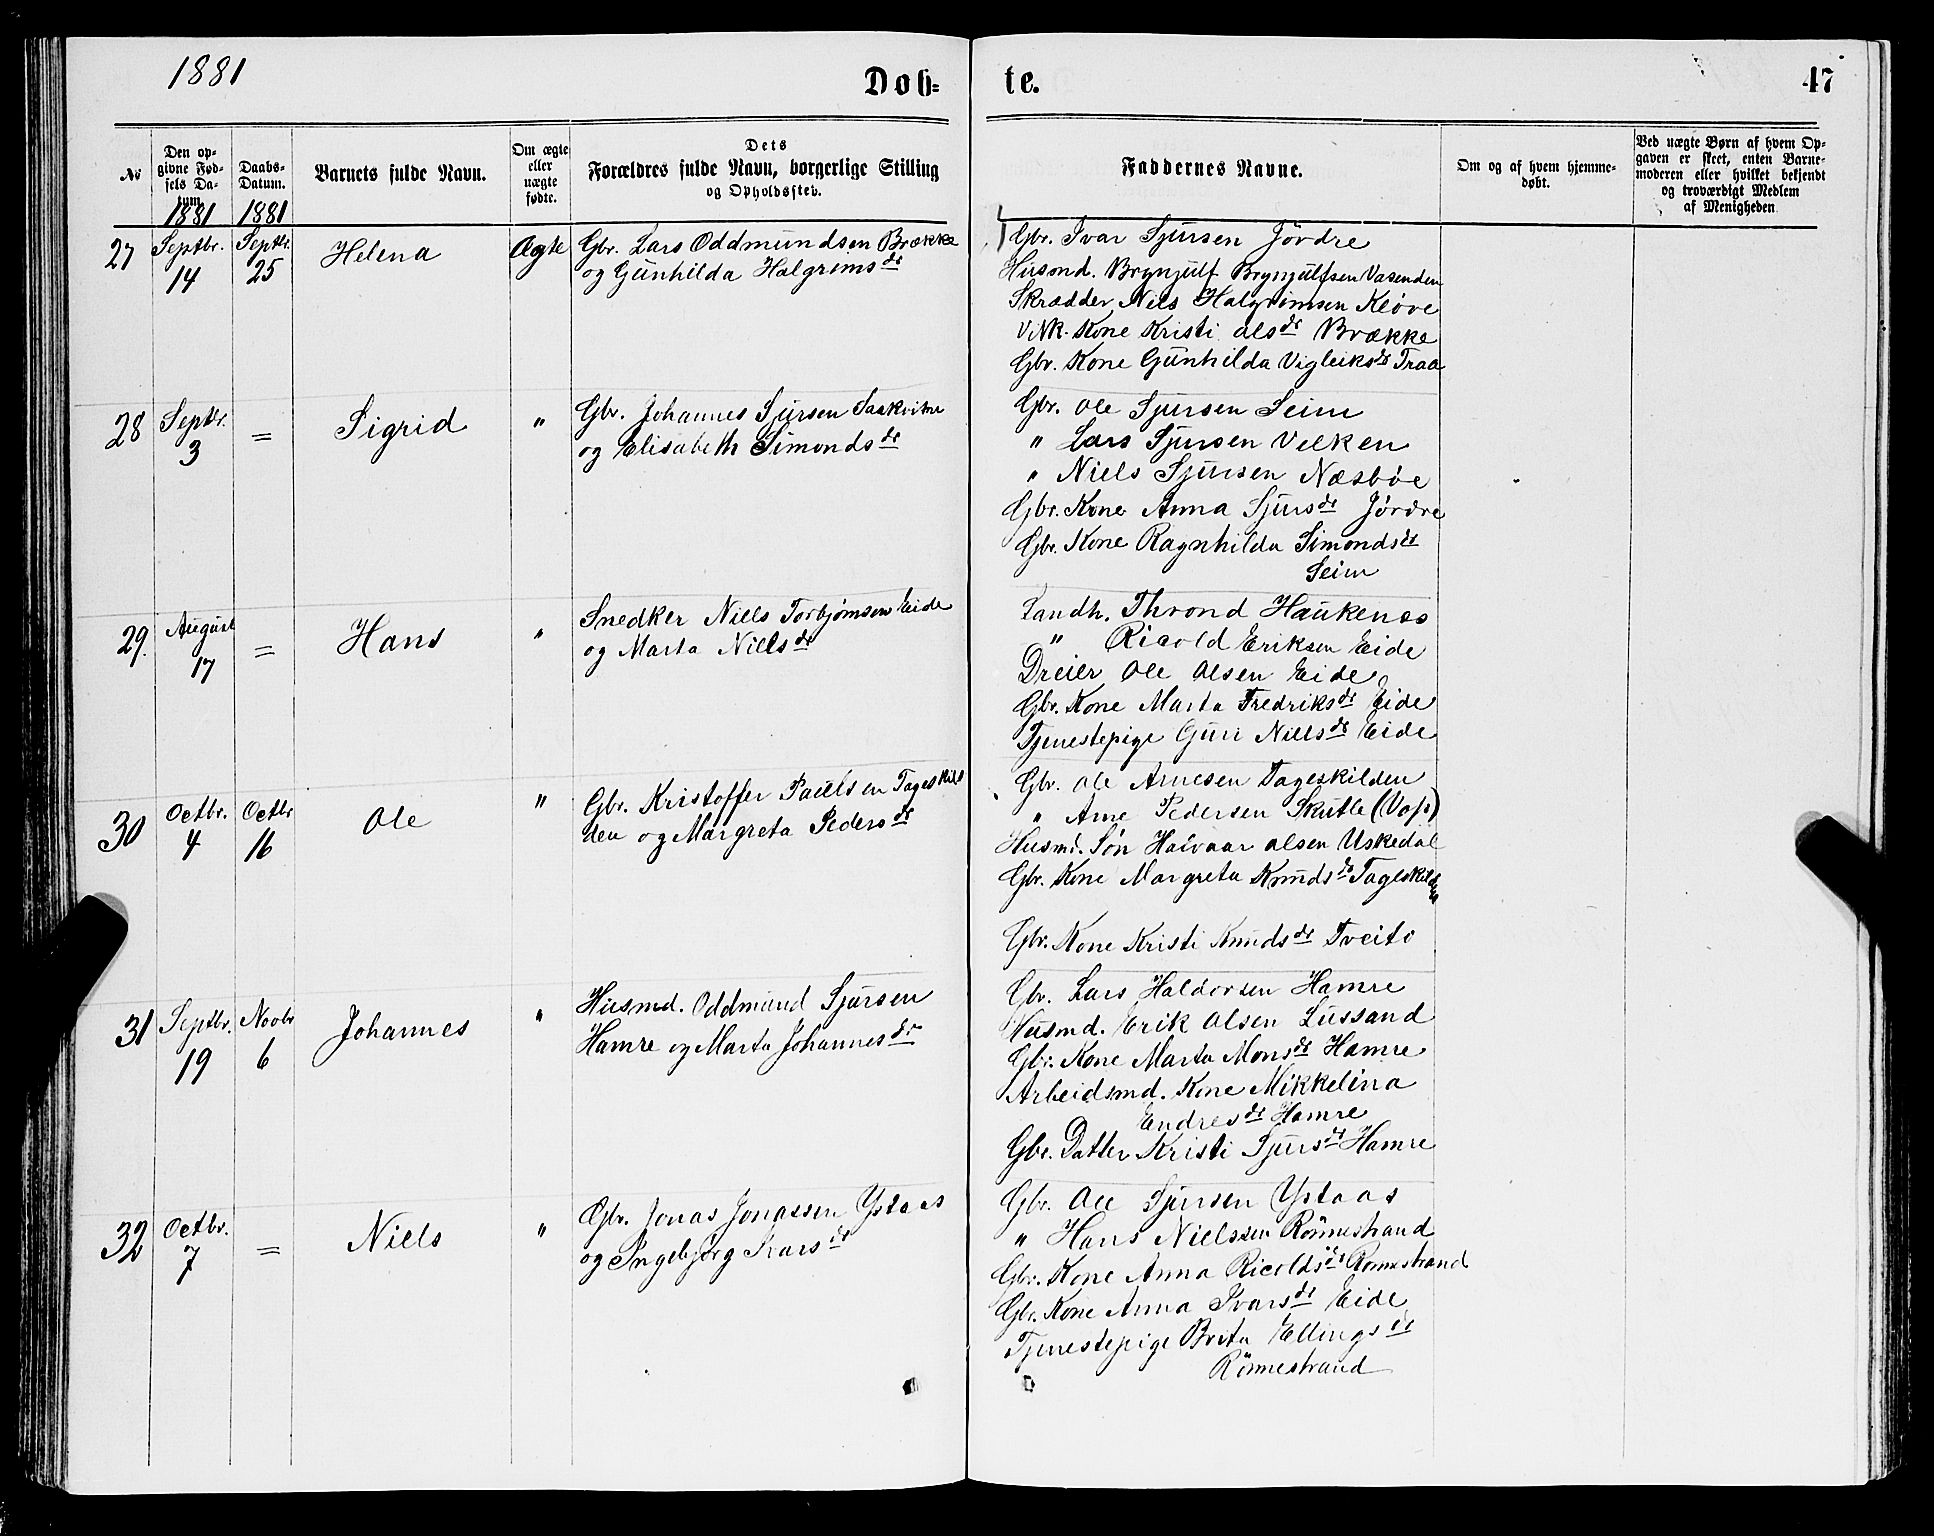 1881
Døb=
te.
47
No
Den op=
givne Fød=
sels Da=
tum.
1881
Daabs=
Datum.
1881
Barnets fulde Navn.
Om ægte
eller
uægte
fødte.
Dets
Forældres fulde Navn, borgerlige Stilling
og Opholdssted.
Faddernes Navne.
Om og af hvem hjemme=
døbt.
Ved uægte Børn af hvem Op=
gaven er skeet, enten Barne=
moderen eller hvilket bekjendt
og troværdigt Medlem
af Menigheden
27
Septbr.
14
Septbr.
25
Helena
Ægte
Gbr. Lars Oddmundsen Brække
og Gunhilda Halgrims dr
Gbr. Ivar Sjursen Jördre
Husmd. Brynjulf Brynjulfsen Vasenden
Skrædder Nils Halgrimsen Klöve
Kone Kristi Ols dr Brække
Gbr. Kone Gunhilda Vigleiks dr Traa
28
Septbr.
3
=
Sigrid
"
Gbr. Johannes Sjursen Saakvitne
og Elisabeth Simonds dr
Gbr. Ole Sjursen Seim
" Lars Sjursen Velken
" Niels Sjursen Næsböe
Gbr. Kone Anna Sjurs dr Jördre
Gbr. Kone Ragnhilda Simonds dr
Seim
29.
August
17
=
Hans
"
Snedker Niels Torbjörnsen Eide
og Marta Niels dr
Landh. Thrond Haukenes
" Ricold Eriksen Eide
Dreier Ole Olsen Eide
Gbr. Kone Marta Fredriks dr Eide
Tjenestepige Guri Niels dr Eide
30
Octbr.
4
Octbr
16
Ole
"
Gbr. Kristoffer Paulsen Tageskil
den og Margreta Peders dr
Gbr. Ole Arnesen Tageskilden
" Arne Pedersen Skutle (Voss)
Husmd. Søn Haivaar Olsen Uskedal
Gbr. Kone Margreta Knuds dr Tageskilden
Gbr. Kone Kristi Knuds dr Tveito
31
Septbr.
19
Novbr
6
Johannes
"
Husmd. Oddmund Sjursen
Hamre og Marta Johannes dr
Gbr. Lars Haldorsen Hamre
Husmd. Erik Olsen Lussand
Gbr. Kone Marta Mons dr Hamre
Arbeidsmd. Kone Mikkelina
Endres dr Hamre
Gbr. Datter Kristi Sjurs dr Hamre
32
Octbr.
7
=
Niels
"
Gbr. Jonas Jonassen Ystaas
og Ingebjörg Ivars dr
Gbr. Ole Sjursen Ystaas
" Hans Nielssen Rönnestrand
Gbr. Kone Anna Ricolds dr Rönnestrand
Gbr. Kone Anna Ivars dr Eide
Tjenestepige Brita Ellings dr
Rönnestrand